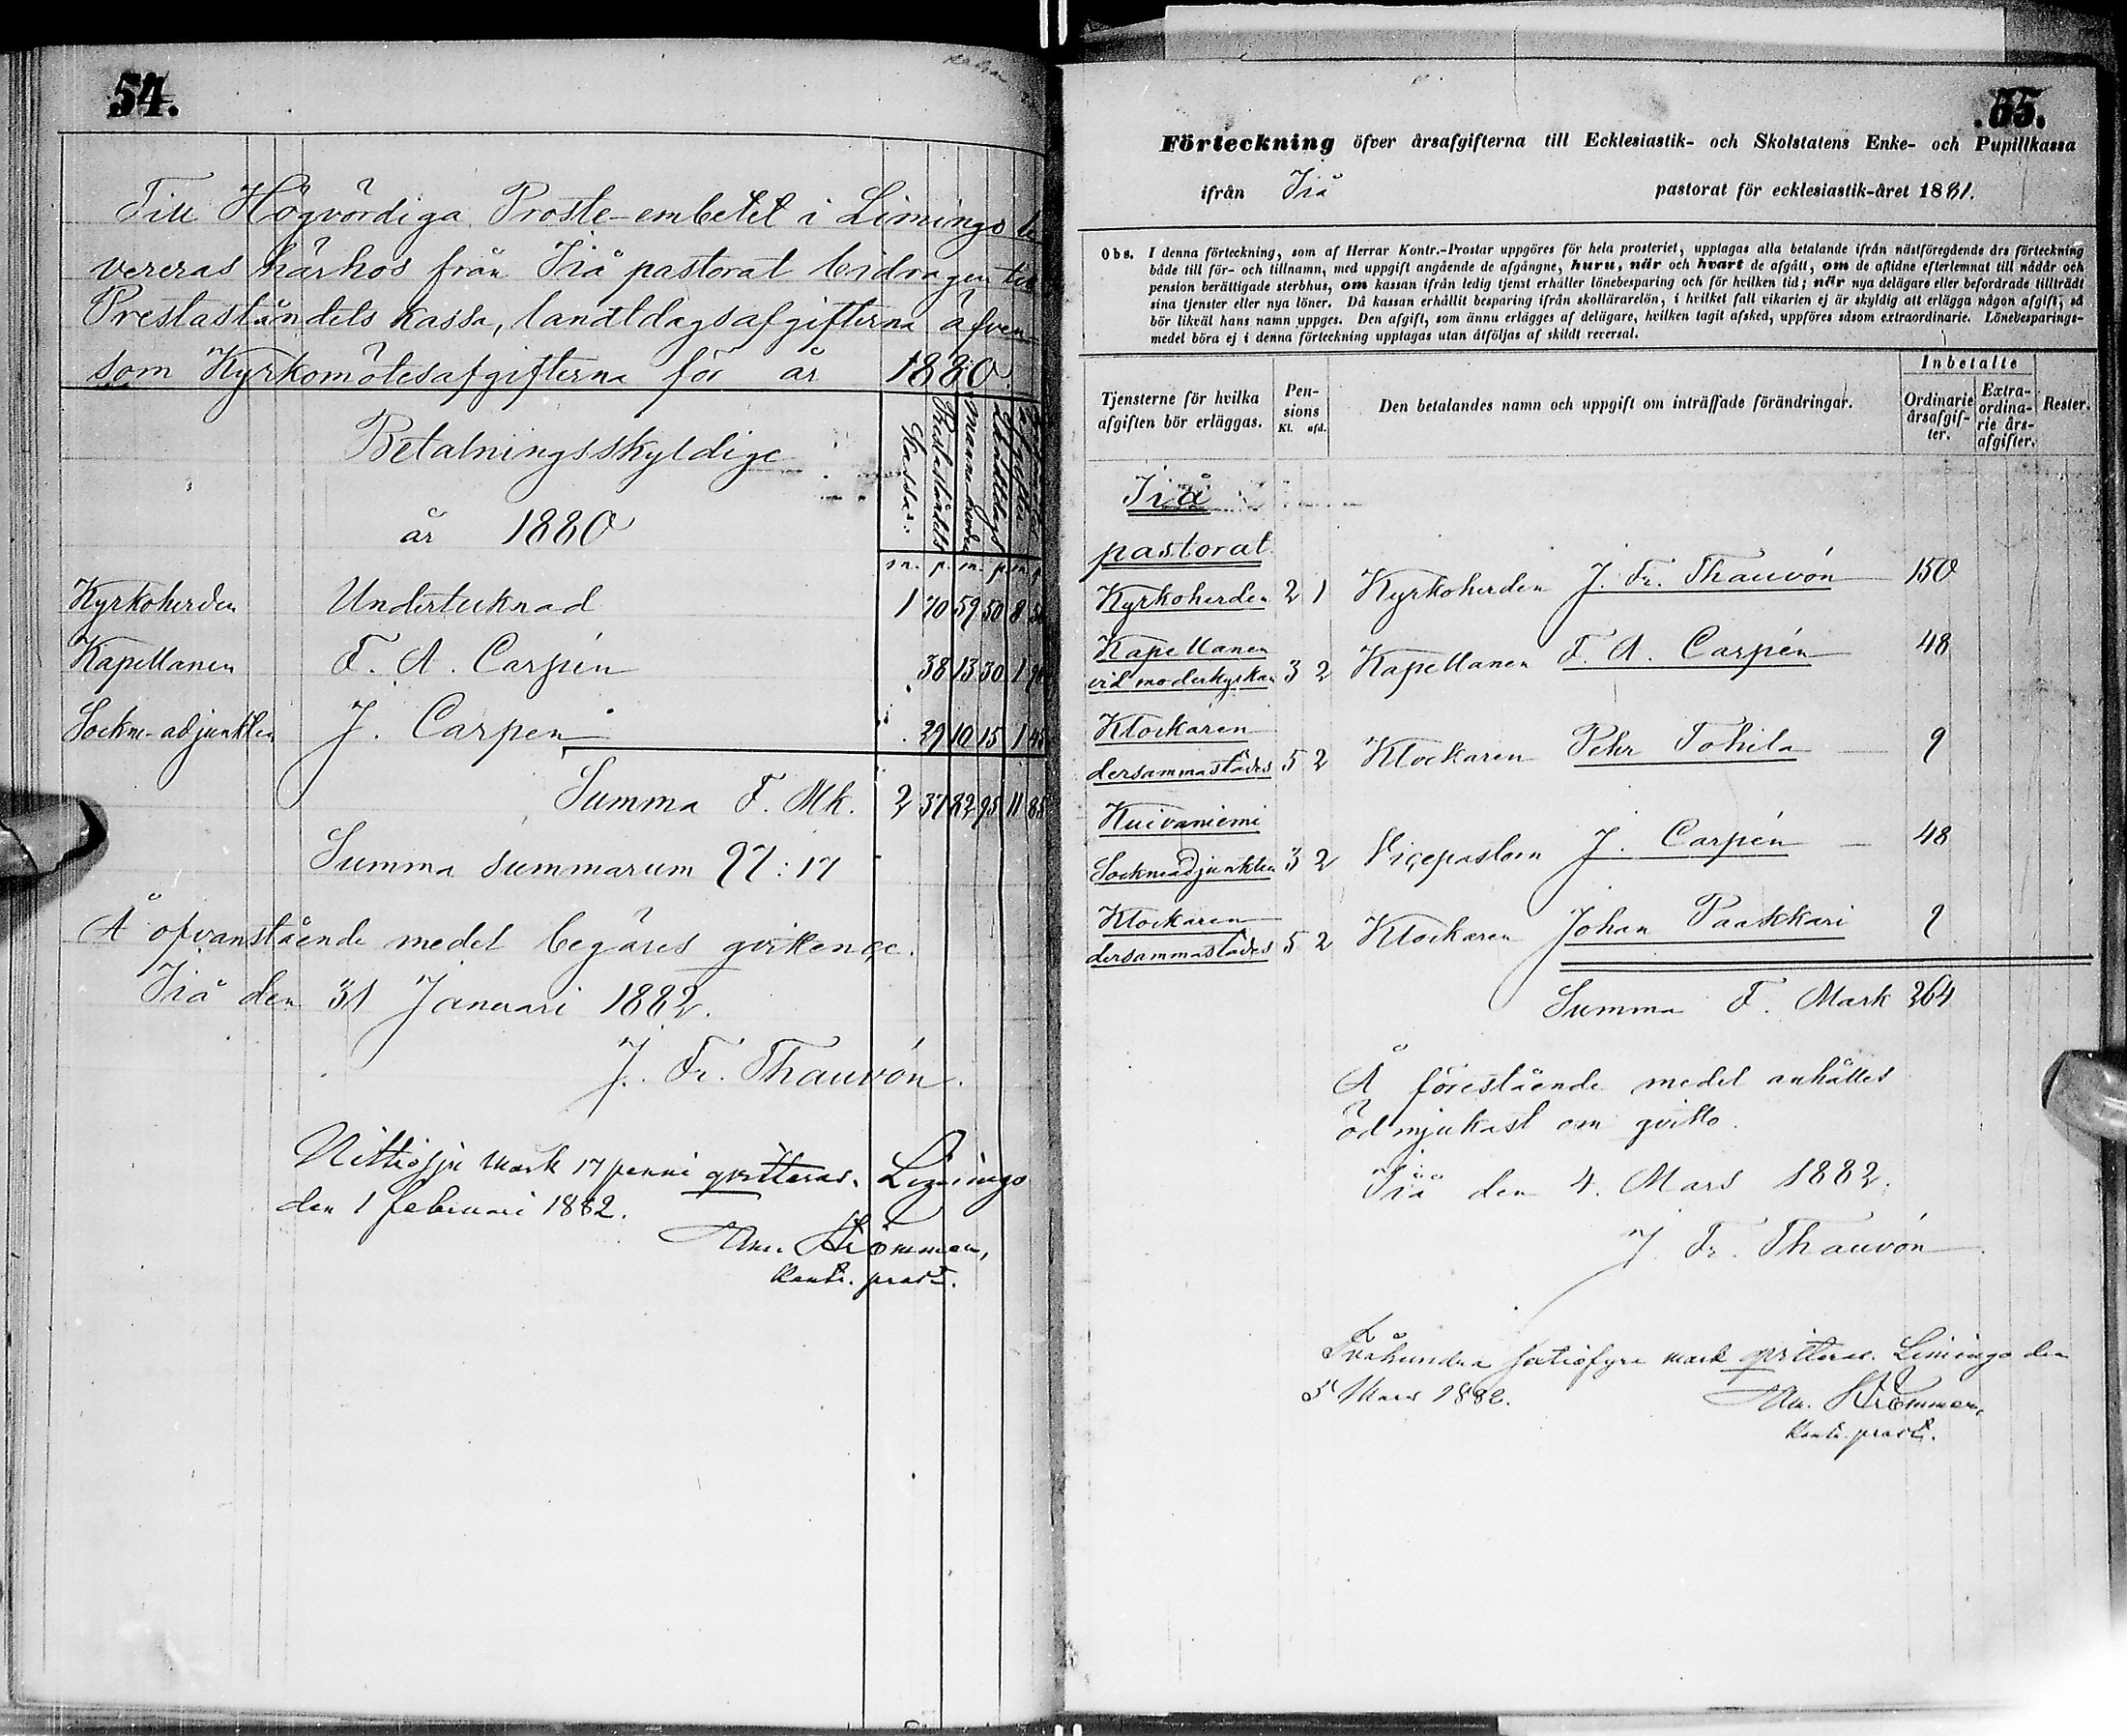 54.
Till Högvördiga Proste-embetet i Limingo le
vereras härhos från Iiå pastorat bidragen till
Prestaståndets kassa, landtdagsafgifterna äfven
som Kyrkomötesafgifterna för år 1880.
Betalningsskyldige
år 1880
Prestaståndets
Kassa:
Landtdags
m. p. m. p. m. p.
Kyrkoherden Undertecknad 1 70 59 50 8 50
Kapellanen F. A. Carpén 38 13 30 1 90
Sockne-adjunkten J. Carpen . 29 10 15 1 45
Summa F. Mk. 2 37 82 95 11 85
Summa summarum 97:17
Å ofvanstående medel begäres qvittence.
Iiå den 31 Januari 1882.
J. Fr. Thauvón.
Nittiosju mark 17 penni qvitteras. Limingo
den 1 februari 1882.
Strömmer,
Kontr. prost.
.55.
Förteckning öfver årsafgifterna till Ecklesiastik- och Skolstatens Enke- och Pupillkassa
ifrån Iiå pastorat för ecklesiastik-året 1881.
Obs. I denna förteckning, som af Herrar Kontr.-Prostar uppgöres för hela prosteriet, upptagas alla betalande ifrån nästföregående års förteckning
både till för- och tillnamn, med uppgift angående de afgångne, huru, när och hvart de afgått, om de aflidne efterlemnat till nådår och
pension berättigade sterbhus, om kassan ifrån ledig tjenst erhåller lönebesparing och för hvilken tid; när nya delägare eller befordrade tillträdt
sina tjenster eller nya löner. Då kassan erhållit besparing ifrån skollärarelön, i hvilket fall vikarien ej är skyldig att erlägga någon afgift, så
bör likväl hans namn uppges. Den afgift, som ännu erlägges af delägare, hvilken tagit afsked, uppföres såsom extraordinarie. Lönebesparings-
medel böra ej i denna förteckning upptagas utan åtföljas af skildt reversal.
Tjensterne för hvilka
afgiften bör erläggas.
Pen-
sions
Kl. afd.
Den betalandes namn och uppgift om inträffade förändringar.
Inbetalte
Ordinarie
årsafgif-
ter.
Extra-
ordina-
rie års-
afgifter.
Rester.
Iiå
pastorat
Kyrkoherden 2 1 Kyrkoherden J. Fr. Thauvón 150
Kapellanen
vid moderkyrkan 3 2 Kapellanen F. A. Carpén 48
Klockaren
dersammastädes 5 2 Klockaren Pehr Tohila — 9
Kuivaniemi
Sockneadjunkten 3 2 Vicepastorn J. Carpén — 48
Klockaren
dersammastädes 5 2 Klockaren Johan Paakkari 9
Summa F. Mark 264
Å förestående medel anhålles
ödmjukast om qvitto.
Iiå den 4. Mars 1882.
J. Fr. Thauvón
Tvåhundra sextiofyra mark qvitteras. Limingo den
5 Mars 1882.
Strömmer,
Kontr. prost.